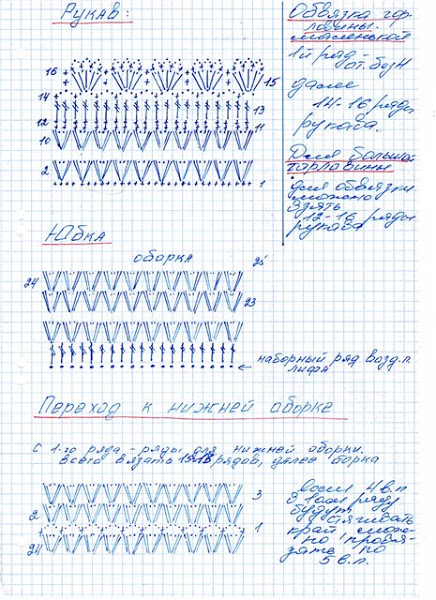 Рукав:
16
15
14
13
12
11
10
2
1
Обвязка гор-
ловины.
маленькой
1й ряд -
ст. без н
далее
14-16 ряды
рукава.
Для больш.
горловины
для обвязки
можно
взять
12-16 ряды
рукава
Юбка
оборка
25
24
23
наборный ряд возд. п.
лифа
Переход к нижней оборке
с 1-го ряда - ряды для нижней оборки.
всего вязать рядов, далее борка
3
2
1
24
если 4 в.п
в 1ом ряду
будут
стягивать
край мож-
но провя-
зать по
5 в.п.